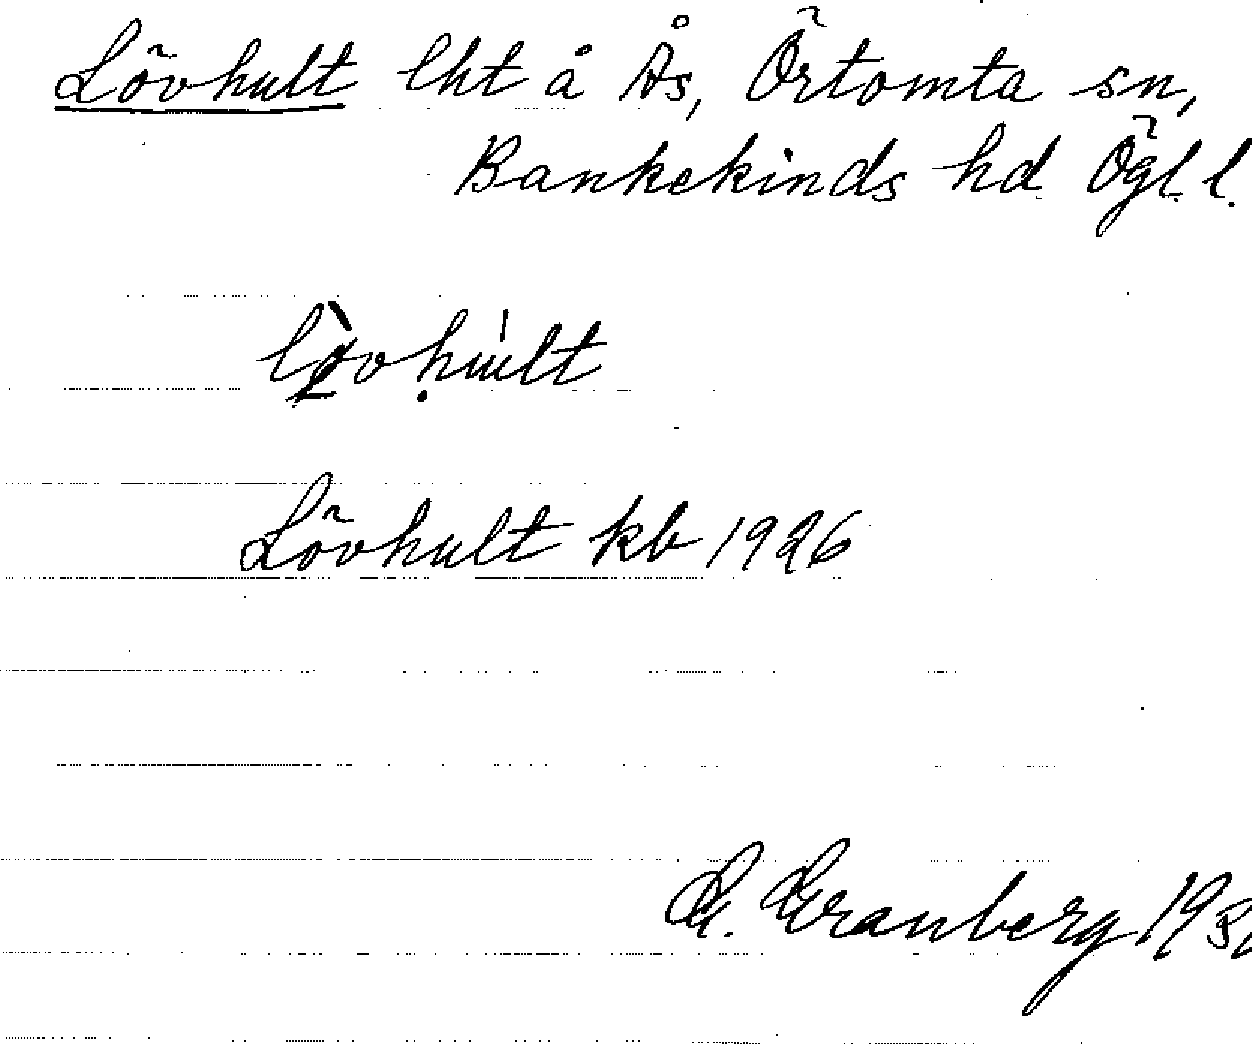 Lövhult lht å Ås, Örtomta sn,
Bankekinds hd Ögl. l.
lø̀vhúlt
Lövhult kb 1926
G. Granberg 19